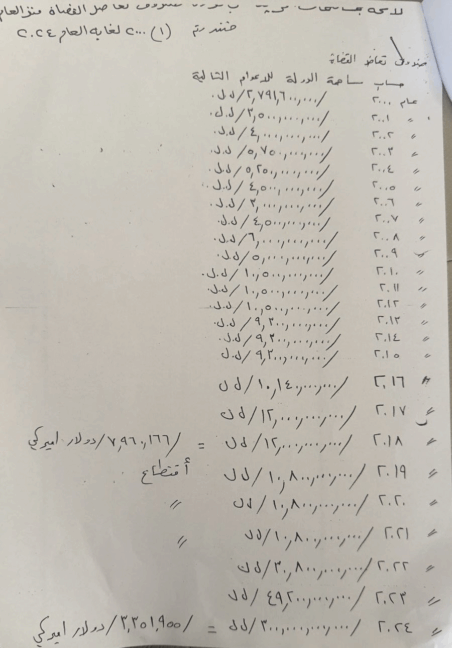 منذ العام
خنند رقم (١) ٢٠٠٠ لغاية العام ٢٠٢٤
صندوق تعاضد القضاة
حساب ساحة الدولة للاعوام التالية
عام ٢٠٠٠ /٢,٧٩١,٦٠٠,٠٠٠/ل.ل.
" ٢٠٠١ /٣,٥٠٠,٠٠٠,٠٠٠/ل.ل.
" ٢٠٠٢ /٤,٠٠٠,٠٠٠,٠٠٠/ل.ل.
" ٢٠٠٣ /٥,٧٥٠,٠٠٠,٠٠٠/ل.ل.
" ٢٠٠٤ /٥,٢٥٠,٠٠٠,٠٠٠/ل.ل.
" ٢٠٠٥ /٤,٥٠٠,٠٠٠,٠٠٠/ل.ل.
" ٢٠٠٦ /٣,٠٠٠,٠٠٠,٠٠٠/ل.ل.
" ٢٠٠٧ /٤,٥٠٠,٠٠٠,٠٠٠/ل.ل.
" ٢٠٠٨ /٦,٠٠٠,٠٠٠,٠٠٠/ل.ل.
" ٢٠٠٩ /٥,٠٠٠,٠٠٠,٠٠٠/ل.ل.
" ٢٠١٠ /١٠,٥٠٠,٠٠٠,٠٠٠/ل.ل.
" ٢٠١١ /١٠,٥٠٠,٠٠٠,٠٠٠/ل.ل.
" ٢٠١٢ /١٠,٥٠٠,٠٠٠,٠٠٠/ل.ل.
" ٢٠١٣ /٩,٣٠٠,٠٠٠,٠٠٠/ل.ل.
" ٢٠١٤ /٩,٣٠٠,٠٠٠,٠٠٠/ل.ل.
" ٢٠١٥ /٩,٣٠٠,٠٠٠,٠٠٠/ل.ل
" ٢,٠١٦ /١٠,١٤٠,٠٠٠,٠٠٠/ل ل
" ٢٠١٧ /١٢,٠٠٠,٠٠٠,٠٠٠/ل ل
" ٢٠١٨ /١٢,٠٠٠,٠٠٠,٠٠٠/ل ل = /٧,٩٦٠,١٦٦/دولار اميركي
" ٢٠١٩ /١٠,٨٠٠,٠٠٠,٠٠٠/ل ل أقتطاع
" ٢٠٢٠ /١٠,٨٠٠,٠٠٠,٠٠٠/ل ل "
" ٢٠٢١ /١٠,٨٠٠,٠٠٠,٠٠٠/ل ل "
" ٢٠٢٢ /٣٠,٨٠٠,٠٠٠,٠٠٠/ل ل
" ٢٠٢٣ /٤٩,٢٠٠,٠٠٠,٠٠٠/ل ل
" ٢٠٢٤ /٣٠٠,٠٠٠,٠٠٠,٠٠٠/ل ل = /٣,٣٥١,٩٥٥/دولار اميركي